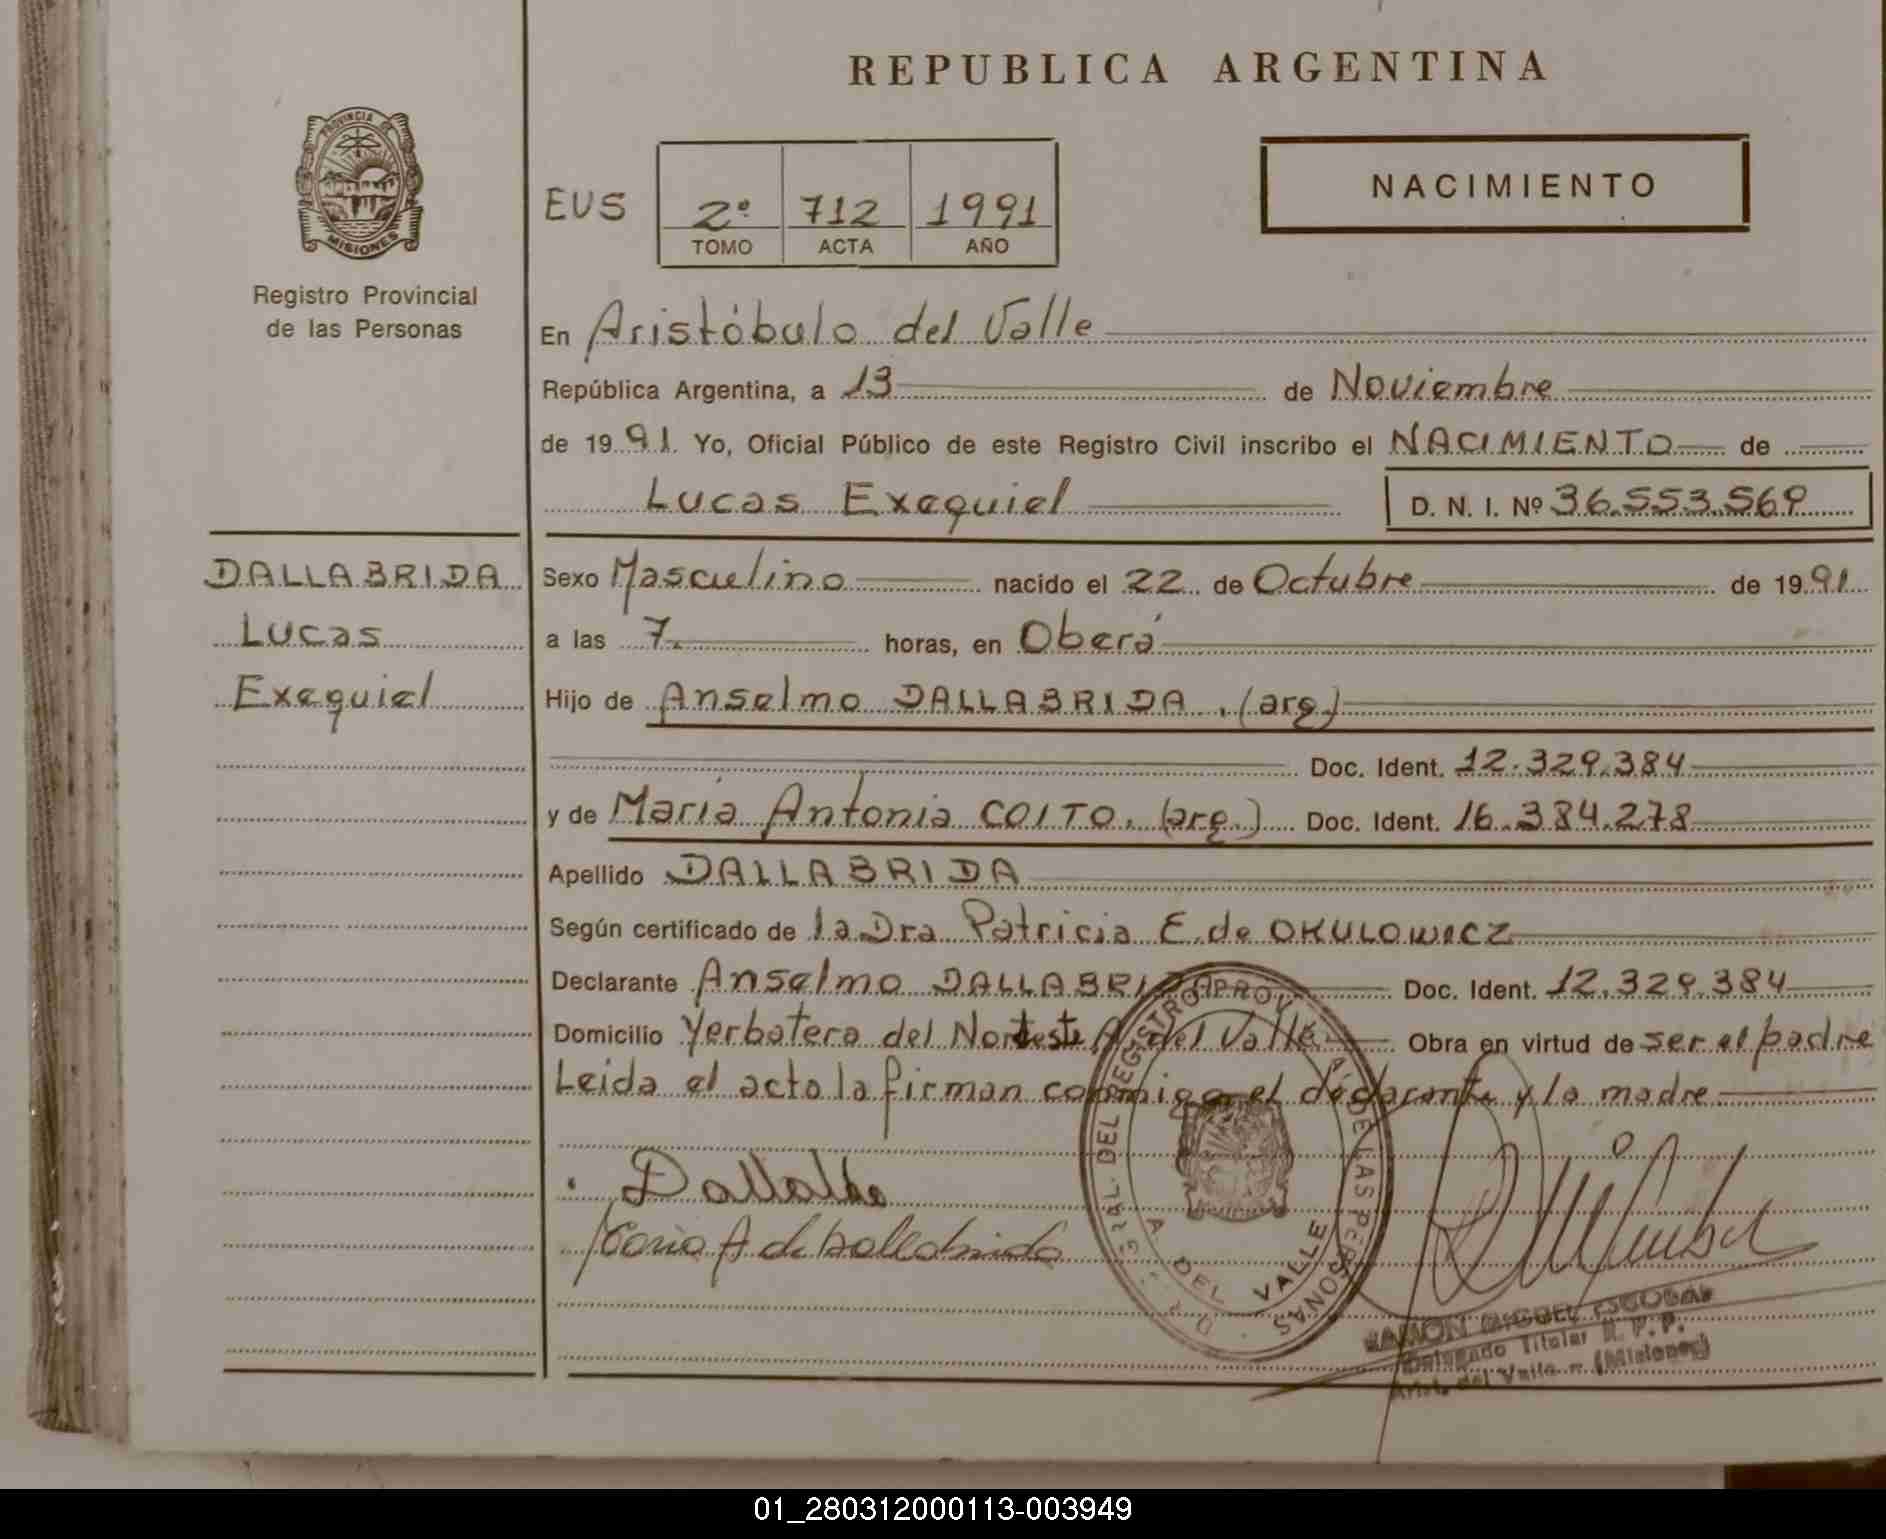 REPUBLICA ARGENTINA
PROVINCIA DE
MISIONES
Registro Provincial
de las Personas
EUS
2º 712 1991
TOMO ACTA AÑO
NACIMIENTO
En Aristóbulo del Valle
República Argentina, a 13 de Noviembre
de 1991. Yo, Oficial Público de este Registro Civil inscribo el NACIMIENTO de
Lucas Exequiel D. N. I. Nº 36.553.569
DALLABRIDA
Lucas
Exequiel
Sexo Masculino nacido el 22 de Octubre de 1991
a las 7. horas, en Oberá
Hijo de Anselmo DALLABRIDA, (arg)
Doc. Ident. 12.329.384
y de María Antonia COITO. (arg.) Doc. Ident. 16.384.278
Apellido DALLABRIDA
Según certificado de la Dra Patricia E. de OKULOWICZ
Declarante Anselmo DALLABRIDA Doc. Ident. 12.329.384
Domicilio Yerbatera del Nordeste A. del Valle Obra en virtud de ser el padre
Leida el acta la firman conmigo el declarante y la madre
D. GRAL. DEL REGISTRO PROVINCIAL DE LAS PERSONAS
A DEL VALLE
María A de Dallabrida
RAMON MIGUEL ESCOBAR
Delegado Titular R. P. P.
Arist. del Valle - (Misiones)
01_280312000113-003949